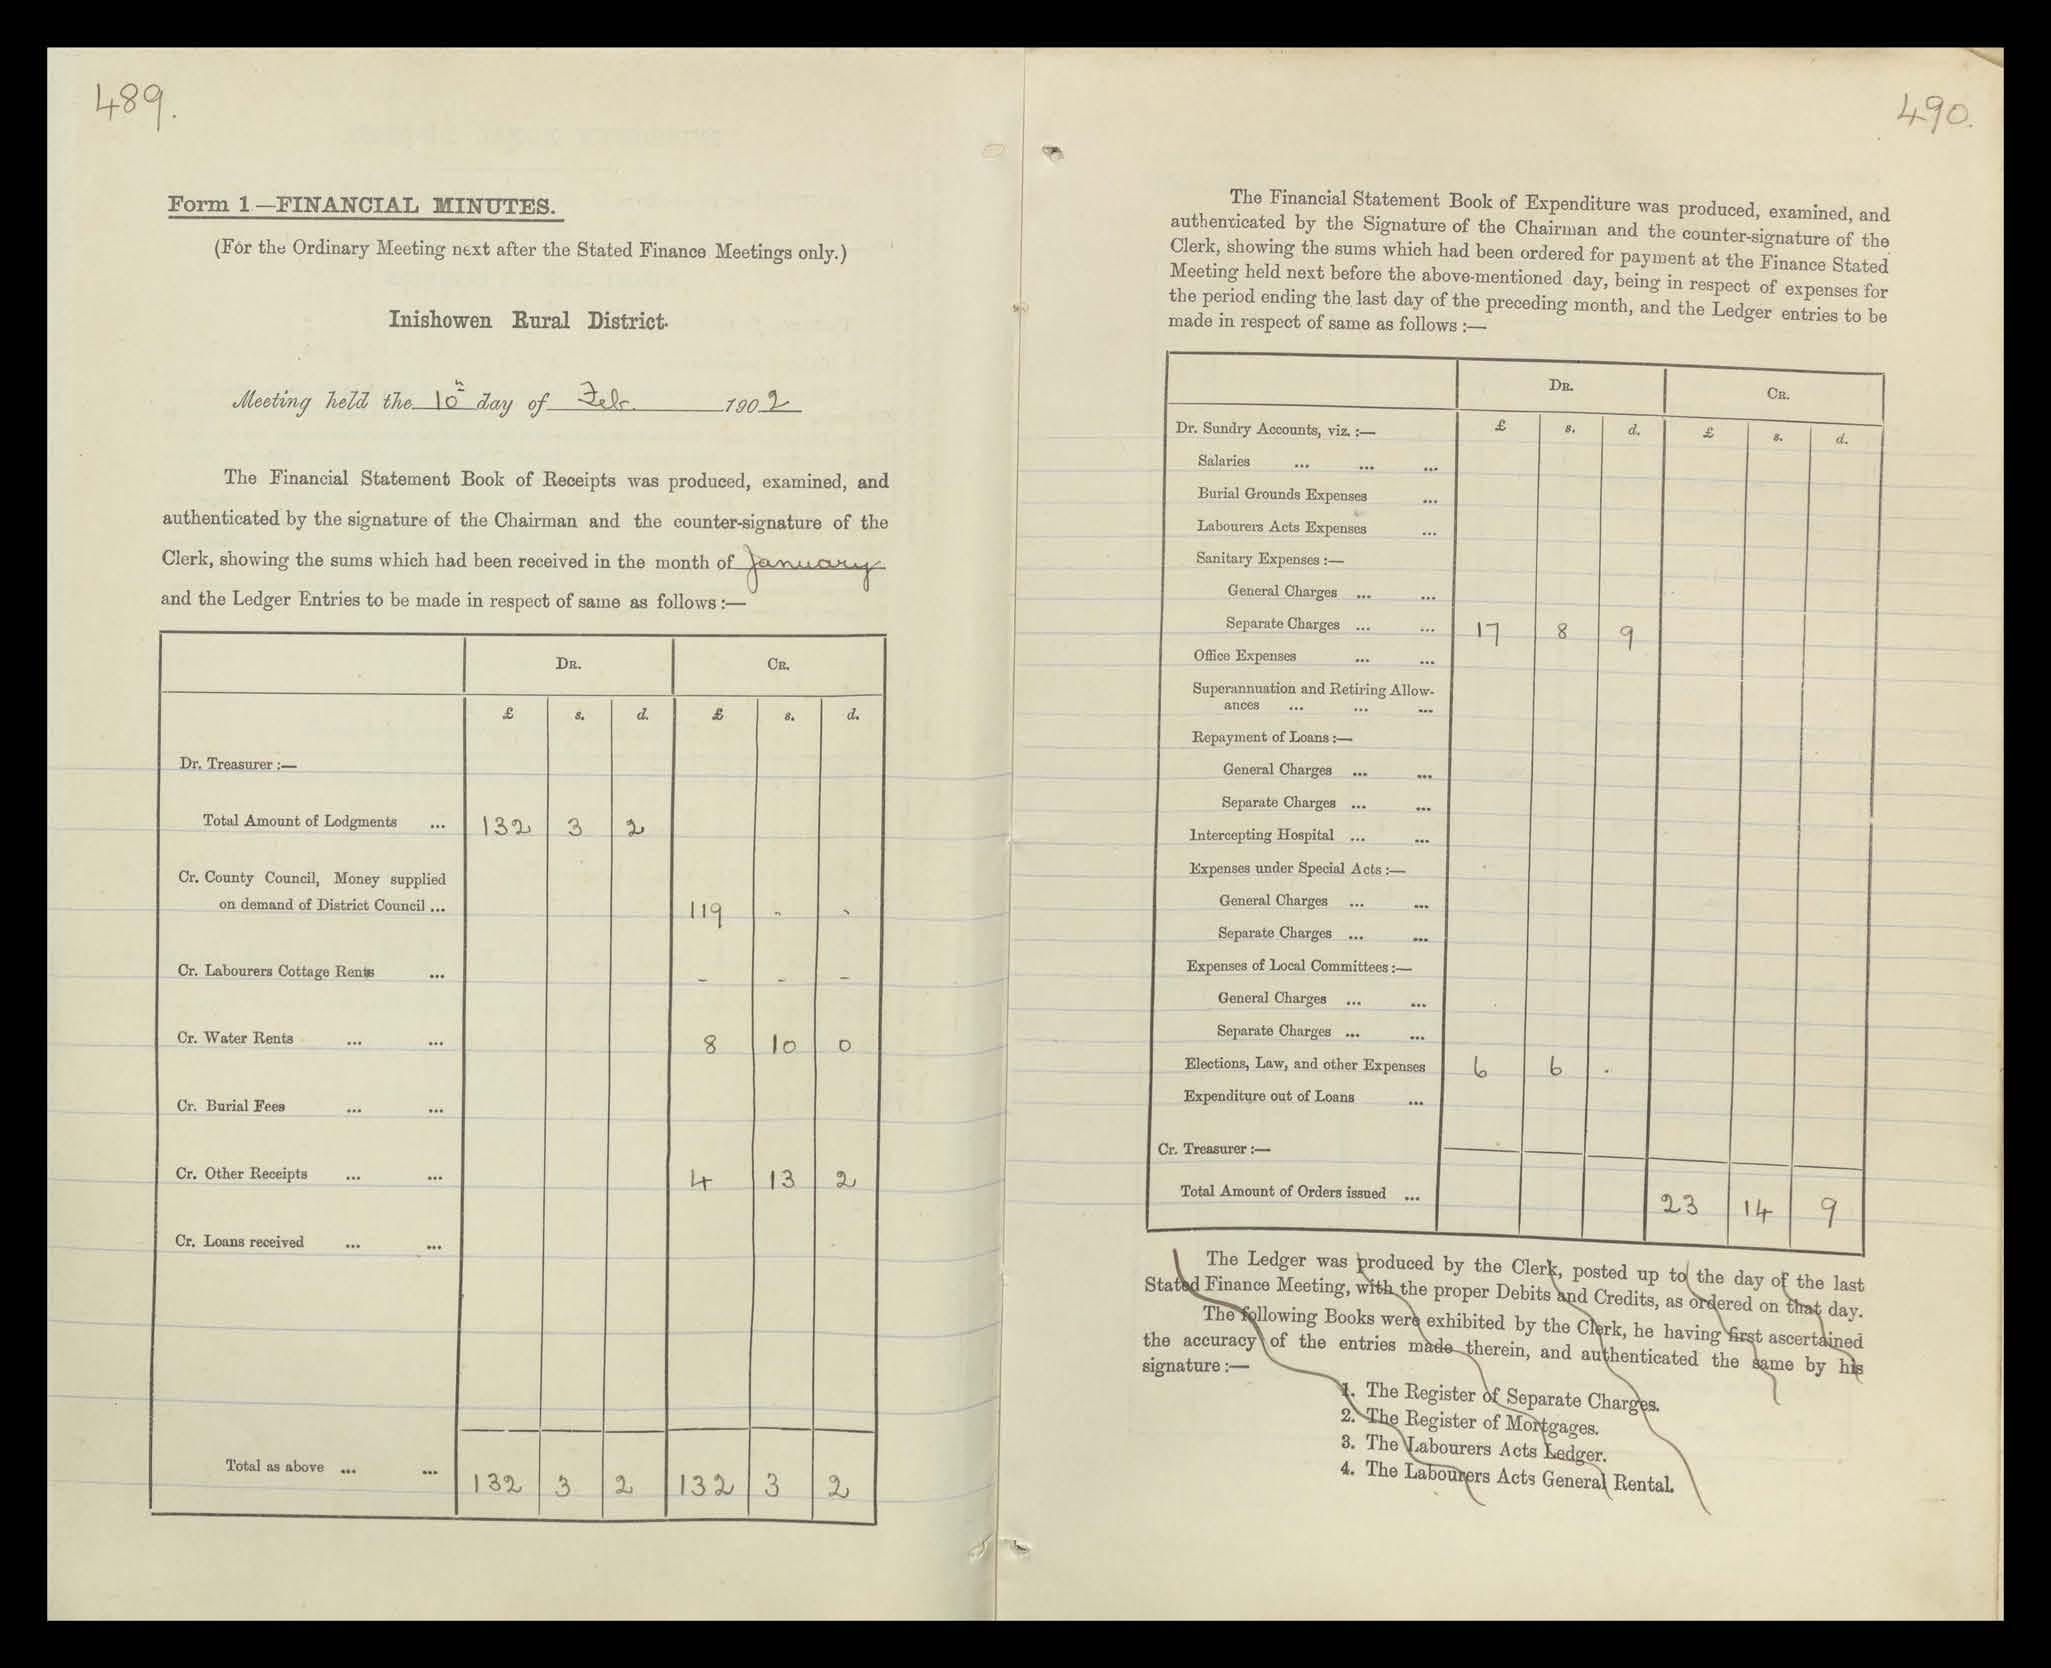 489.
Form 1—FINANCIAL MINUTES.
(For the Ordinary Meeting next after the Stated Finance Meetings only.)
Inishowen Rural District.
Meeting held the 10th day of Feb. 1902
The Financial Statement Book of Receipts was produced, examined, and
authenticated by the signature of the Chairman and the counter-signature of the
Clerk, showing the sums which had been received in the month of January
and the Ledger Entries to be made in respect of same as follows :—
DR. CR.
£ s. d. £ s. d.
Dr. Treasurer :—
Total Amount of Lodgments ... 132 3 2
Cr. County Council, Money supplied
on demand of District Council ... 119 " "
Cr. Labourers Cottage Rents ... - - -
Cr. Water Rents ... ... 8 10 0
Cr. Burial Fees ... ...
Cr. Other Receipts ... ... 4 13 2
Cr. Loans received ... ...
Total as above ... ... 132 3 2 132 3 2
490.
The Financial Statement Book of Expenditure was produced, examined, and
authenticated by the Signature of the Chairman and the counter-signature of the
Clerk, showing the sums which had been ordered for payment at the Finance Stated
Meeting held next before the above-mentioned day, being in respect of expenses for
the period ending the last day of the preceding month, and the Ledger entries to be
made in respect of same as follows :—
DR. CR.
Dr. Sundry Accounts, viz. :— £ s. d. £ s. d.
Salaries ... ... ...
Burial Grounds Expenses ...
Labourers Acts Expenses ...
Sanitary Expenses :—
General Charges ... ...
Separate Charges ... ... 17 8 9
Office Expenses ... ...
Superannuation and Retiring Allow-
ances ... ... ...
Repayment of Loans :—
General Charges ... ...
Separate Charges ... ...
Intercepting Hospital ... ...
Expenses under Special Acts :—
General Charges ... ...
Separate Charges ... ...
Expenses of Local Committees :—
General Charges ... ...
Separate Charges ... ...
Elections, Law, and other Expenses 6 6 .
Expenditure out of Loans ...
Cr. Treasurer :—
Total Amount of Orders issued ... 23 14 9
The Ledger was produced by the Clerk, posted up to the day of the last
Stated Finance Meeting, with the proper Debits and Credits, as ordered on that day.
The following Books were exhibited by the Clerk, he having first ascertained
the accuracy of the entries made therein, and authenticated the same by his
signature :—
1. The Register of Separate Charges.
2. The Register of Mortgages.
3. The Labourers Acts Ledger.
4. The Labourers Acts General Rental.